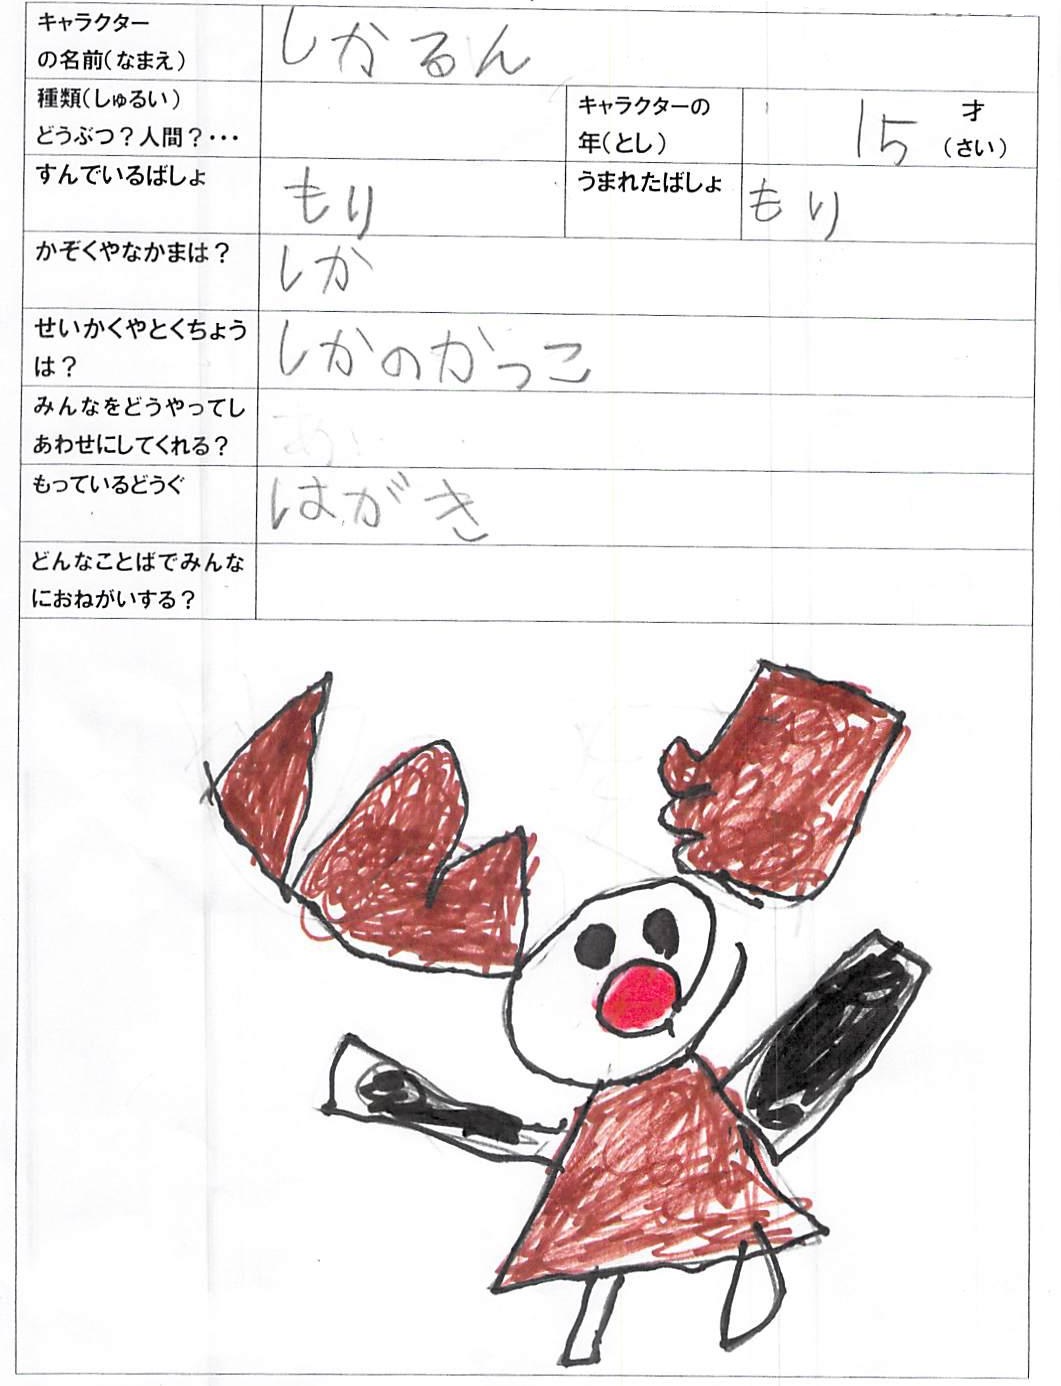 キャラクター
の名前(なまえ)
しかるん
種類(しゅるい)
どうぶつ？人間？・・・
キャラクターの
年(とし)
15
才
(さい)
すんでいるばしょ
もり
うまれたばしょ
もり
かぞくやなかまは？
しか
せいかくやとくちょう
は？
しかのかっこ
みんなをどうやってし
あわせにしてくれる？
もっているどうぐ
はがき
どんなことばでみんな
におねがいする？